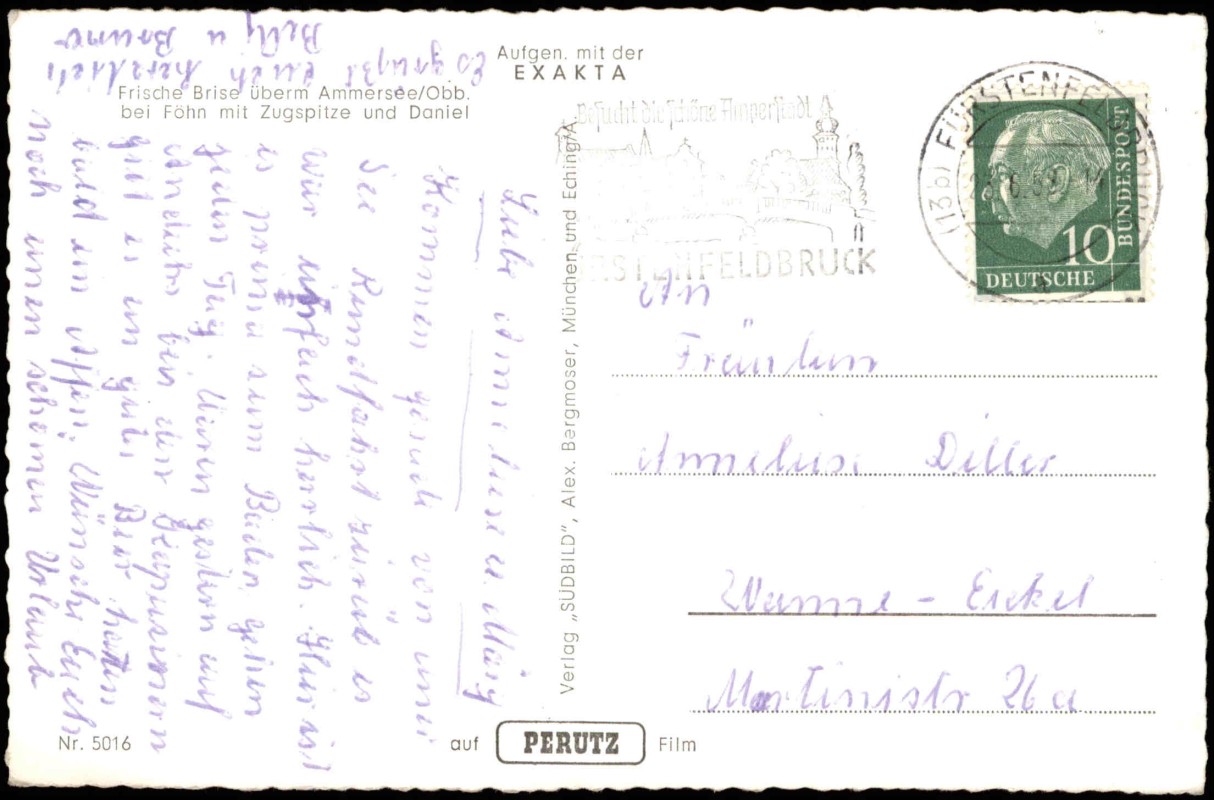 Aufgen. mit der
EXAKTA
Frische Brise überm Ammersee/Obb.
bei Föhn mit Zugspitze und Daniel
Liebe Anneliese u. Mary
Kommen gerade von unser
See Rundfahrt zurück es
war einfach herrlich. Hier ist
es prima zum Baden, gehen
jeden Tag. Waren gestern auf
Andechs bei den Kapuzinern
gibt es ein gutes Bier, hatten
bald ein Affen. Wünsche Euch
noch einen schönen Urlaub
Es grüßt euch herzlich
Betty u Bruno
Verlag „SÜDBILD", Alex. Bergmoser, München und Eching/A.
Besucht die schöne Amperstadt
FÜRSTENFELDBRUCK
(13b) FÜRSTENFELDBRUCK
DEUTSCHE
BUNDESPOST
10
An
Fräulein
Anneliese Diller
Wanne - Eickel
Martinistr 26a
Nr. 5016
auf PERUTZ Film